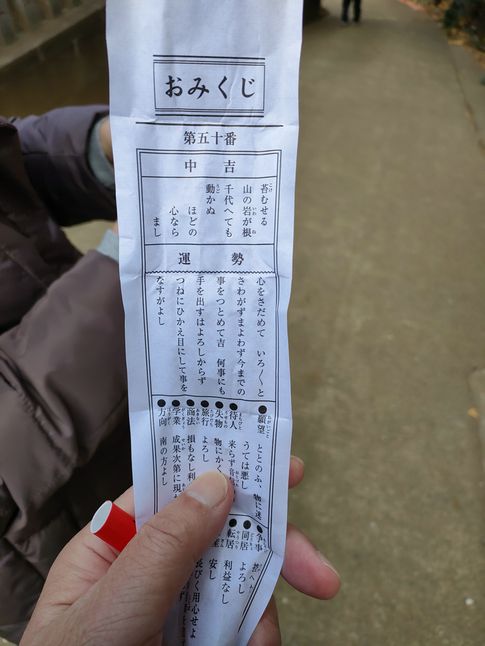 おみくじ
第五十番
中吉
苔むせる
山の岩が根
千代へても
動かぬ
ほどの
心なら
まし
運勢
心をさだめて いろ〳〵と
さわがずまよわず今までの
事をつとめて吉 何事にも
手を出すはよろしからず
つねにひかえ目にして事を
なすがよし
●願望 ととのふ、物に迷
うては悪し
●待人 来らず音信
●失物 物にかく
●旅行 よろし
●商法 損もなし利
●学業 成果次第に現
●方向 南の方よし
●争事
よろし
●同居 利益なし
●転居 安し
長びく用心せよ